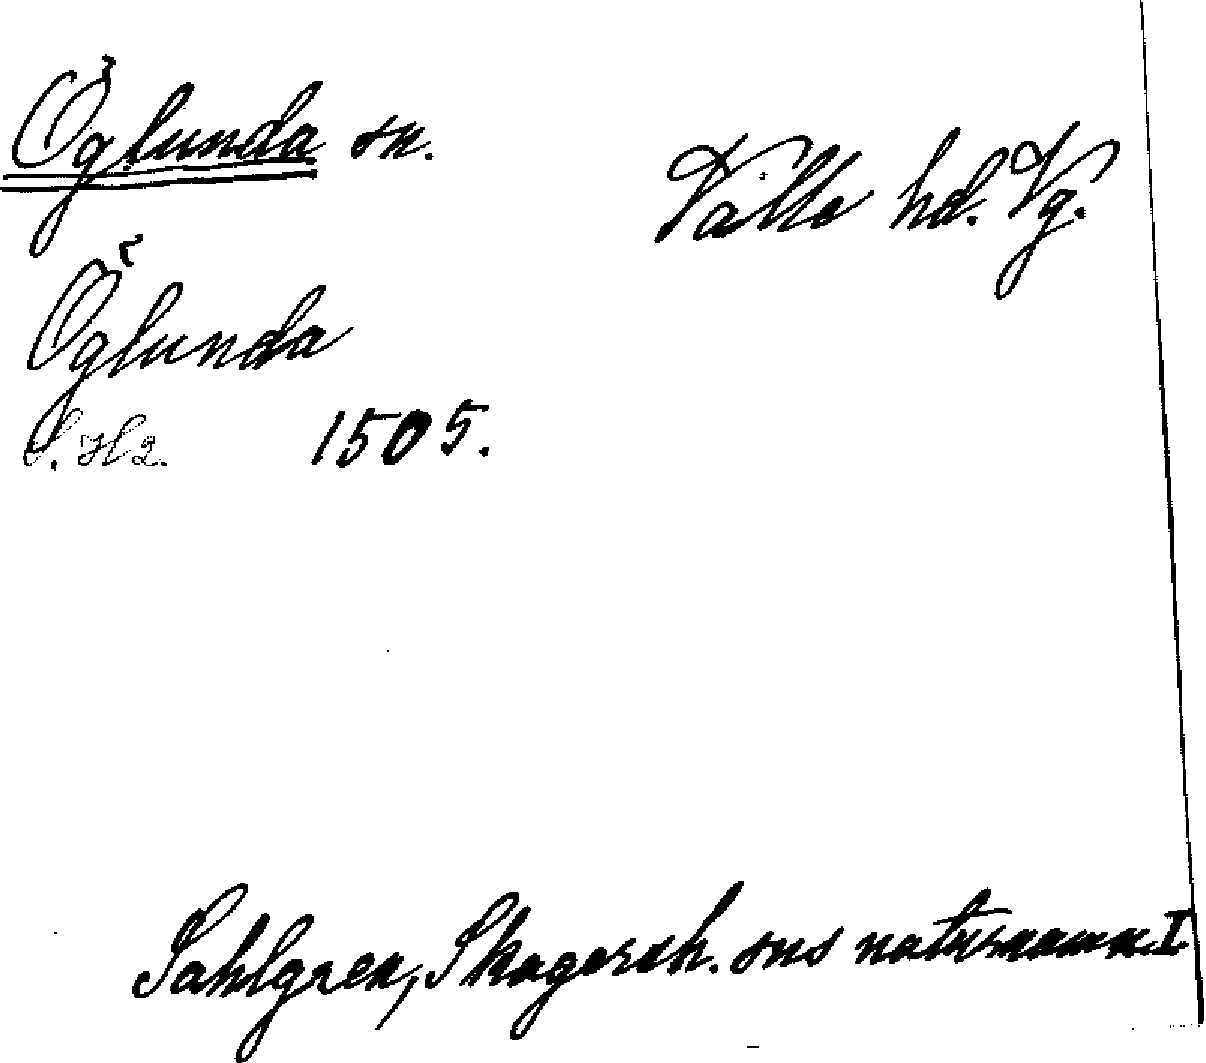 Öglunda sn.
Valle hd. Vg.
Öglunda
S. H 2. 1505.
Sahlgren, Skagersh. sns naturnamn I